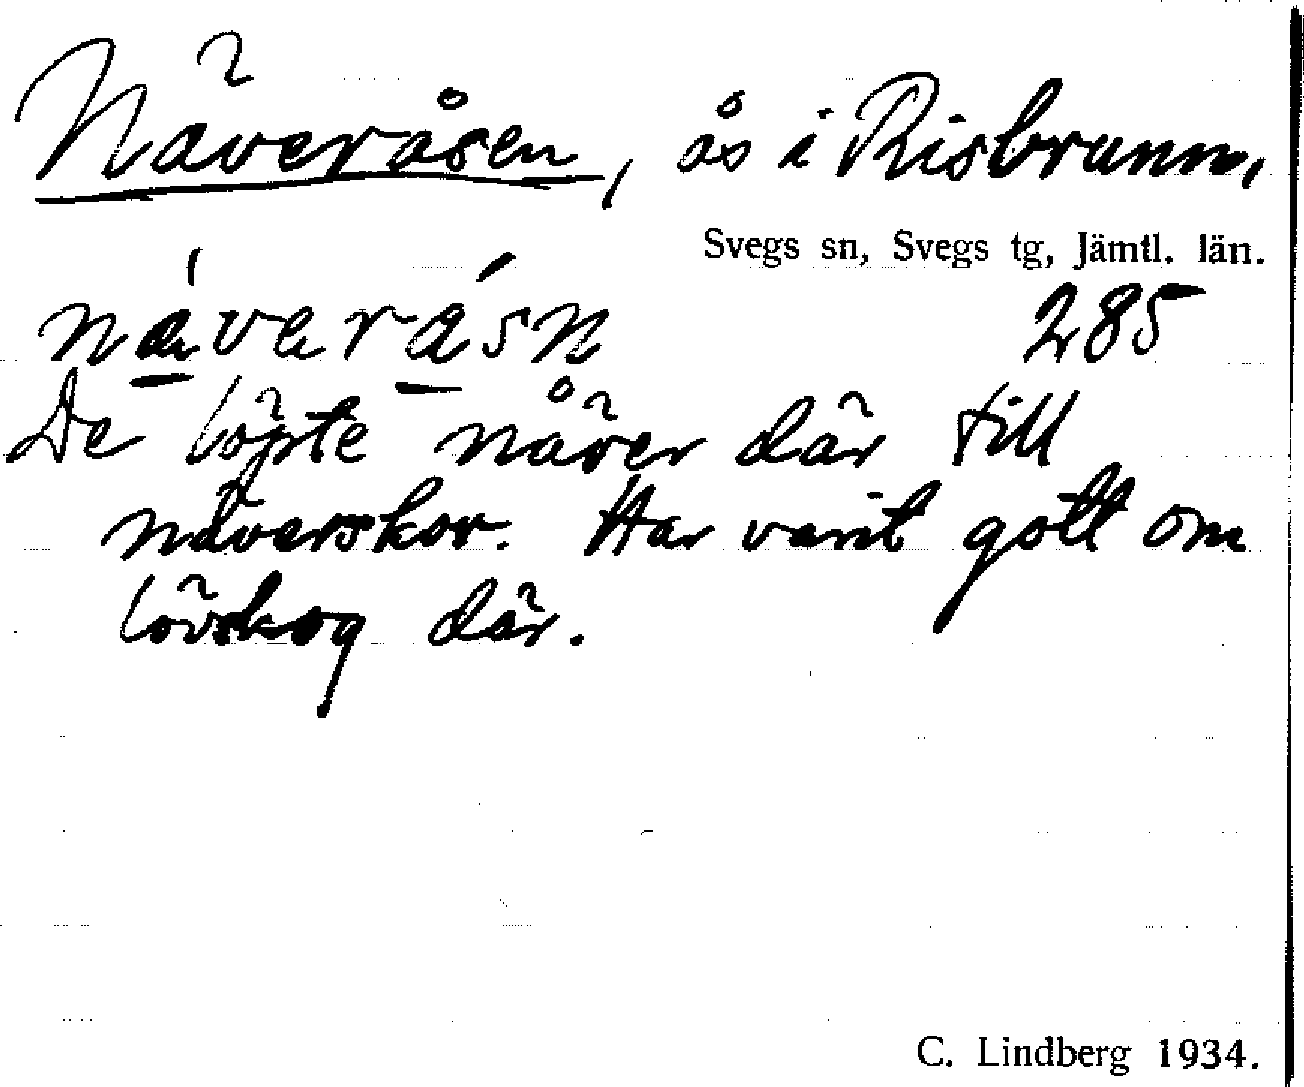 Näveråsen, ås i Risbrunn,
Svegs sn, Svegs tg, Jämtl. län.
näveråsn 285
De löpte näver där till
näverskor. Har varit gott om
lövskog där.
C. Lindberg 1934.